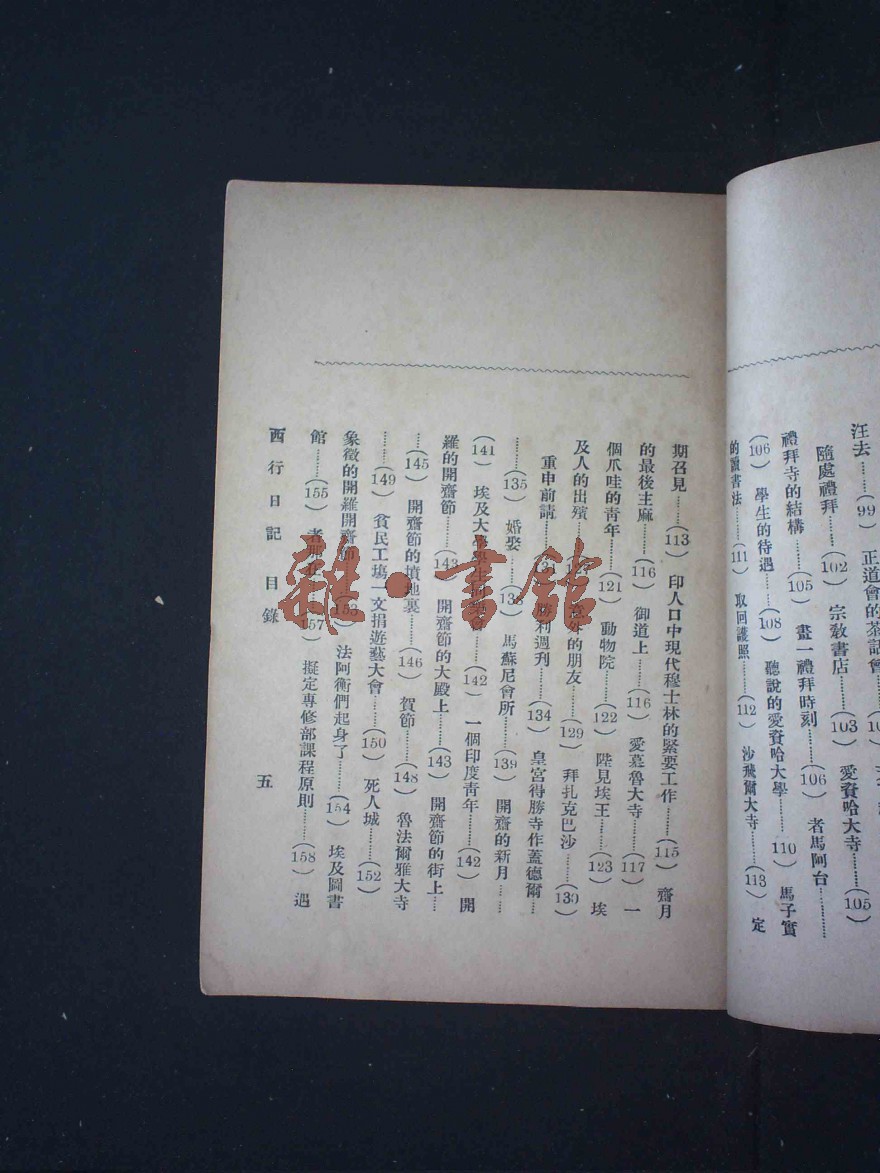 汪去……(99) 正道會的茶話會
隨處禮拜……(102) 宗敎書店……(103) 愛資哈大寺……(105)
禮拜寺的結構……(105) 畫一禮拜時刻……(106) 者馬阿台……
(106) 學生的待遇……(108) 聽說的愛資哈大學……110) 馬子實
的讀書法……(111) 取回護照……(112) 沙飛爾大寺……(113) 定
期召見……(113) 印人口中現代穆士林的緊要工作……(115) 齋月
的最後主麻……(116) 御道上……(116) 愛慕魯大寺……(117) 一
個爪哇的靑年……(121) 動物院……(122) 陛見埃王……(123) 埃
及人的出殯……意外的朋友……(129) 拜扎克巴沙……(130)
重申前請……勝利週刊……(134) 皇宮得勝寺作蓋德爾…
……(135) 婚娶……(138) 馬蘇尼會所……(139) 開齋的新月……
(141) 埃及大學學生同樂會……(142) 一個印度靑年……(142) 開
羅的開齋節……(143) 開齋節的大殿上……(143) 開齋節的街上…
……(145) 開齋節的墳地裏……(146) 賀節……(148) 魯法爾雅大寺
……(149) 貧民工塲一文捐遊藝大會……(150) 死人城……(152)
象徵的開羅開齋節……(153) 法阿衡們起身了……(154) 埃及圖書
館……(155) 者那在……(157) 擬定專修部課程原則……(158) 遇
西行日記 目錄 五
雜·書館